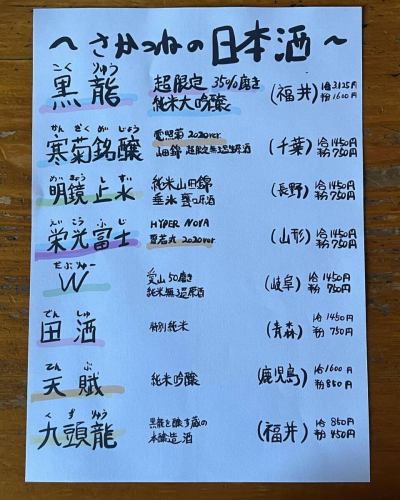 ～さかつねの日本酒～
こく りゅう
黒龍 超限定 35%磨き 純米大吟醸 (福井) 合3125円 粉1600円
かん ぎく めい じょう
寒菊銘醸 電照菊 2020ver 山田錦 超限定無濾過生原酒 (千葉) 合1450円 粉750円
めい きょう し すい
明鏡止水 純米山田錦 垂氷 甕口原酒 (長野) 合1450円 粉750円
えい こう ふ じ
栄光富士 HYPER NOVA 2020ver (山形) 合1450円 粉750円
だぶりゅー
W 愛山50磨き 純米無濾過原酒 (岐阜) 合1450円 粉750円
でん しゅ
田酒 特別純米 (青森) 合1450円 粉750円
てん ぶ
天賦 純米吟醸 (鹿児島) 合1600円 粉850円
く ず りゅう
九頭龍 黒龍を醸す蔵の 本醸造酒 (福井) 合850円 粉450円